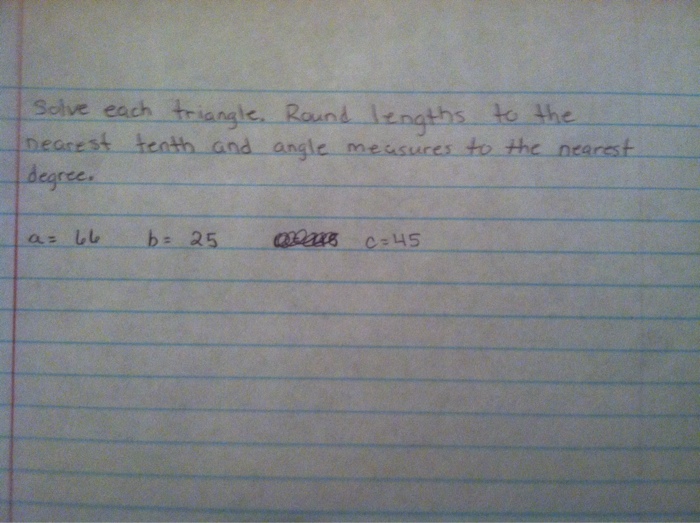 Solve each triangle. Round lengths to the
nearest tenth and angle measures to the nearest
degree.
a= 66 b= 25 c=45